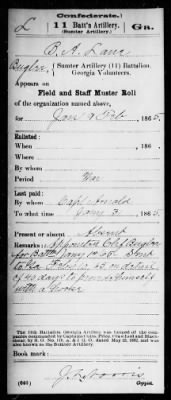 Confederate.
L 11 Batt'n Artillery. Ga.
(Sumter Artillery.)
B. A. Lane
Bugler, Sumter Artillery (11) Battalion,
Georgia Volunteers.
Appears on
Field and Staff Muster Roll
of the organization named above,
for Jan & Feb, 1865.
Enlisted:
When , 186 .
Where
By whom
Period War
Last paid:
By whom Capt Arnold
To what time Jany 3 , 1865.
Present or absent Absent
Remarks: Appointed Chf Bugler
for Batt Jany 1st 65. Sent
to Ga Feby 65 on detail
of 40 days to provide himself
with a horse
The 11th Battalion Georgia Artillery was formed of the companies
commanded by Captains
by S. O. No. , A. & I. G. O., dated May 22, 1862, and was also
known as the Sumter Artillery.
Book mark:
(646) Copyist.